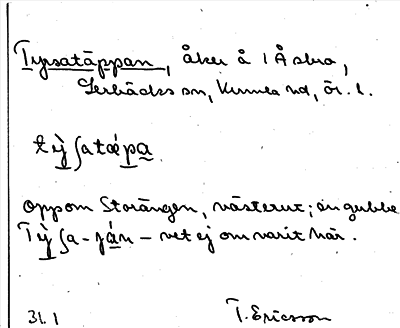 Tyrsatäppan, åker å 1 Åsbro,
Lerbäcks sn, Kumla hd, Ör. l.
tỳʃatǽpa
Oppom Storängen, västerut; en gubbe
Tỳʃa-ján – vet ej om varit här.
31.1 T. Ericsson